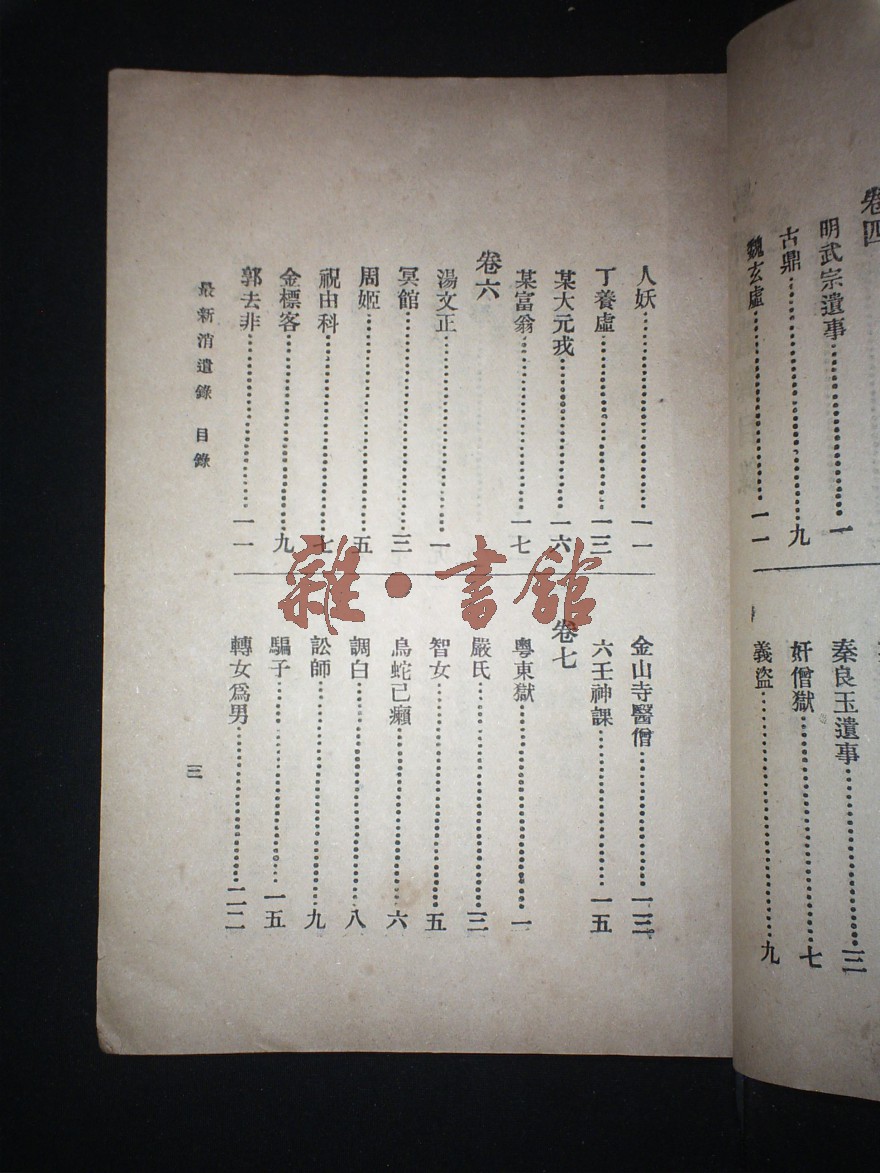 卷四
明武宗遺事……一
古鼎……九
魏玄虛……一一
秦良玉遺事……三
奸僧獄……七
義盜……九
人妖……一一
丁養虛……一三
某大元戎……一六
某富翁……一七
卷六
湯文正……一
冥館……三
周姬……五
祝由科……七
金標客……九
郭去非……一一
金山寺醫僧……一三
六壬神課……一五
卷七
粵東獄……一
嚴氏……三
智女……五
烏蛇已癩……六
調白……八
訟師……九
騙子……一五
轉女爲男……二二
最新消遣錄 目錄
三
雜·書館